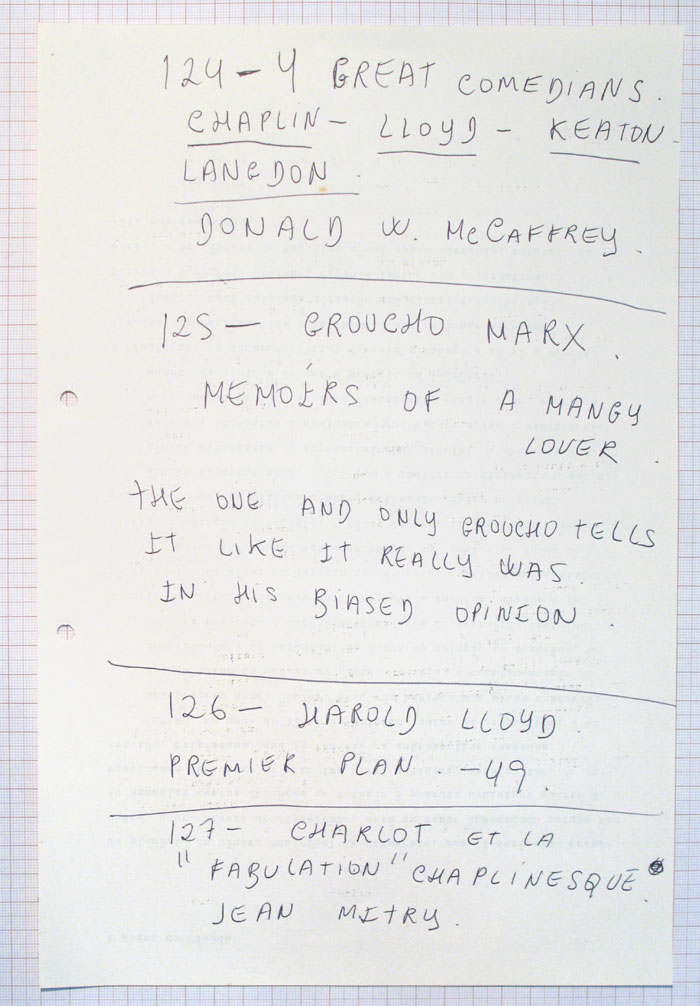 124 - 4 GREAT COMEDIANS.
CHAPLIN - LLOYD - KEATON -
LANGDON.
DONALD W. McCAFFREY.
125 - GROUCHO MARX.
MEMOIRS OF A MANGY
LOVER.
THE ONE AND ONLY GROUCHO TELLS
IT LIKE IT REALLY WAS
IN HIS BIASED OPINION.
126 - HAROLD LLOYD.
PREMIER PLAN - 49.
127 - CHARLOT ET LA
"FABULATION" CHAPLINESQUE
JEAN MITRY.